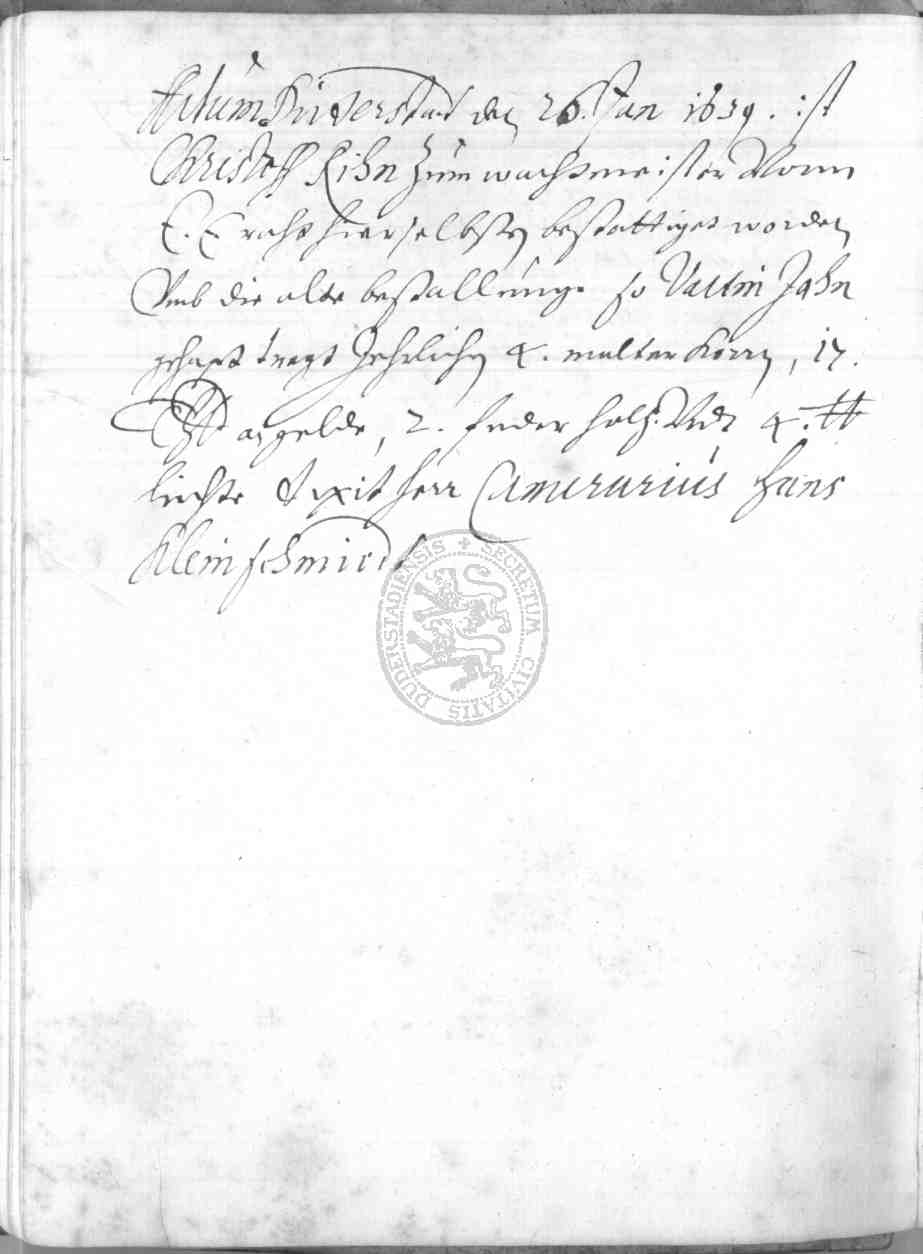 Actum Duderstadt den 26. Jan 1639. ist
Christoff Kihn zum wachtmeister Vonn
E. E. raht hierselbsten bestattiget worden
Vmb die alte bestallunge so Valtin Jahn
gehapt tregt Jehrlichen 4. malter Korn, 17.
an gelde, 2. fuder holtz Vndt 4. ℔
lichte dixit herr Camerarius Hans
Kleinschmiedt
SECRETUM CIVITATIS DUDERSTADIENSIS